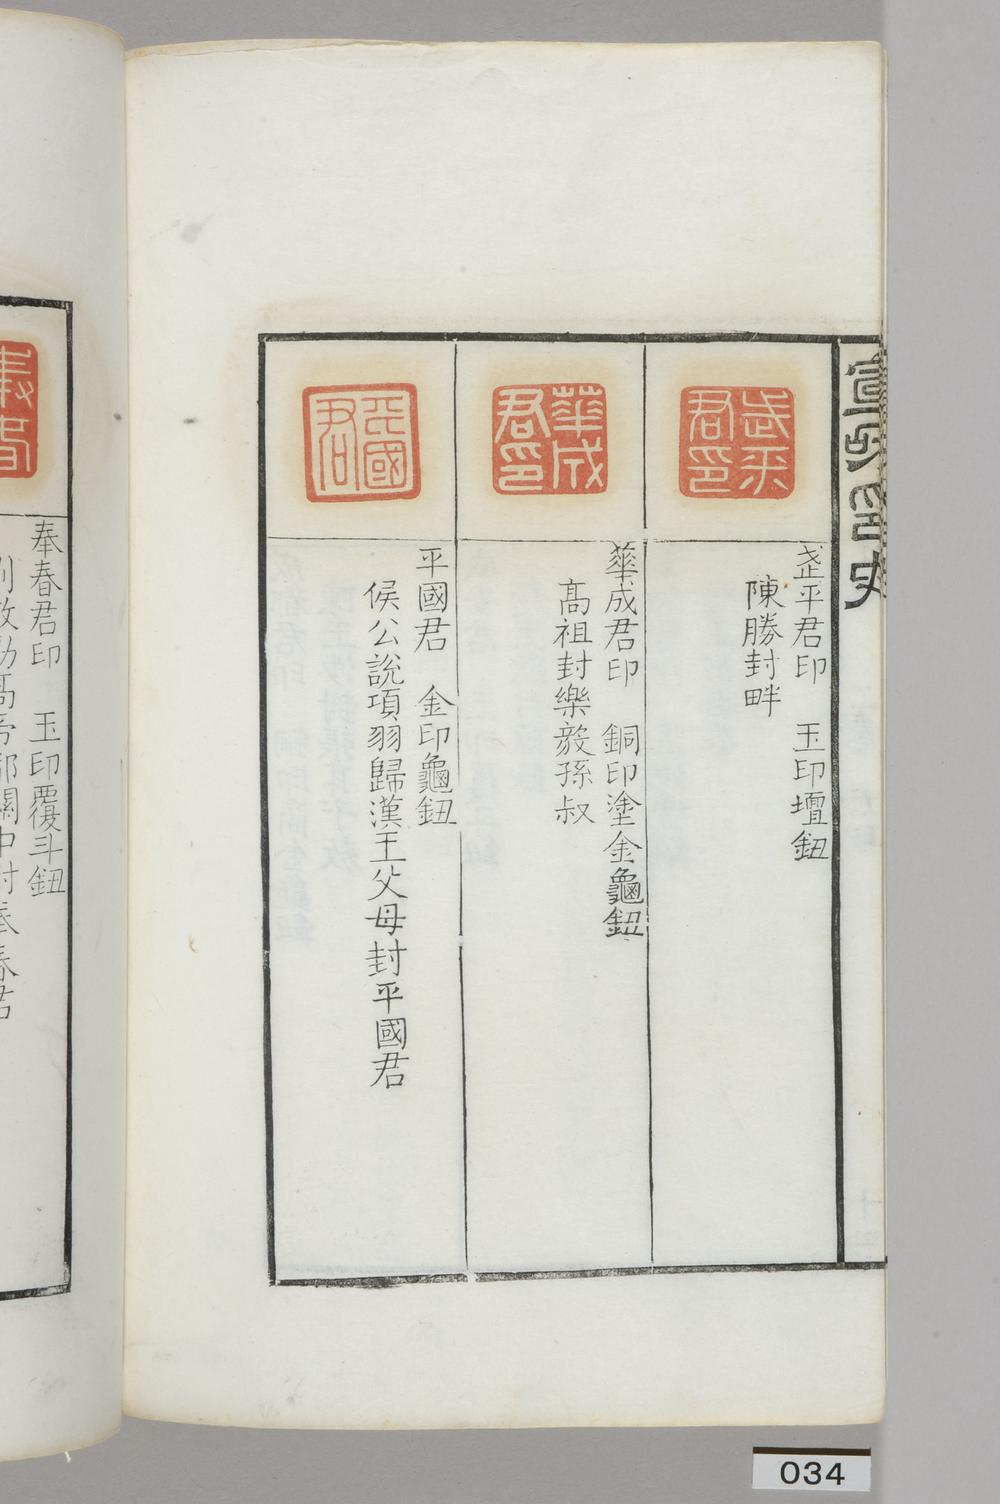 宣和印史
武平君印
武平君印　玉印壇鈕
陳勝封畔
華成君印
華成君印　銅印塗金龜鈕
高祖封樂毅孫叔
平國君
平國君　金印龜鈕
侯公說項羽歸漢王父母封平國君
奉春君印　玉印覆斗鈕
034